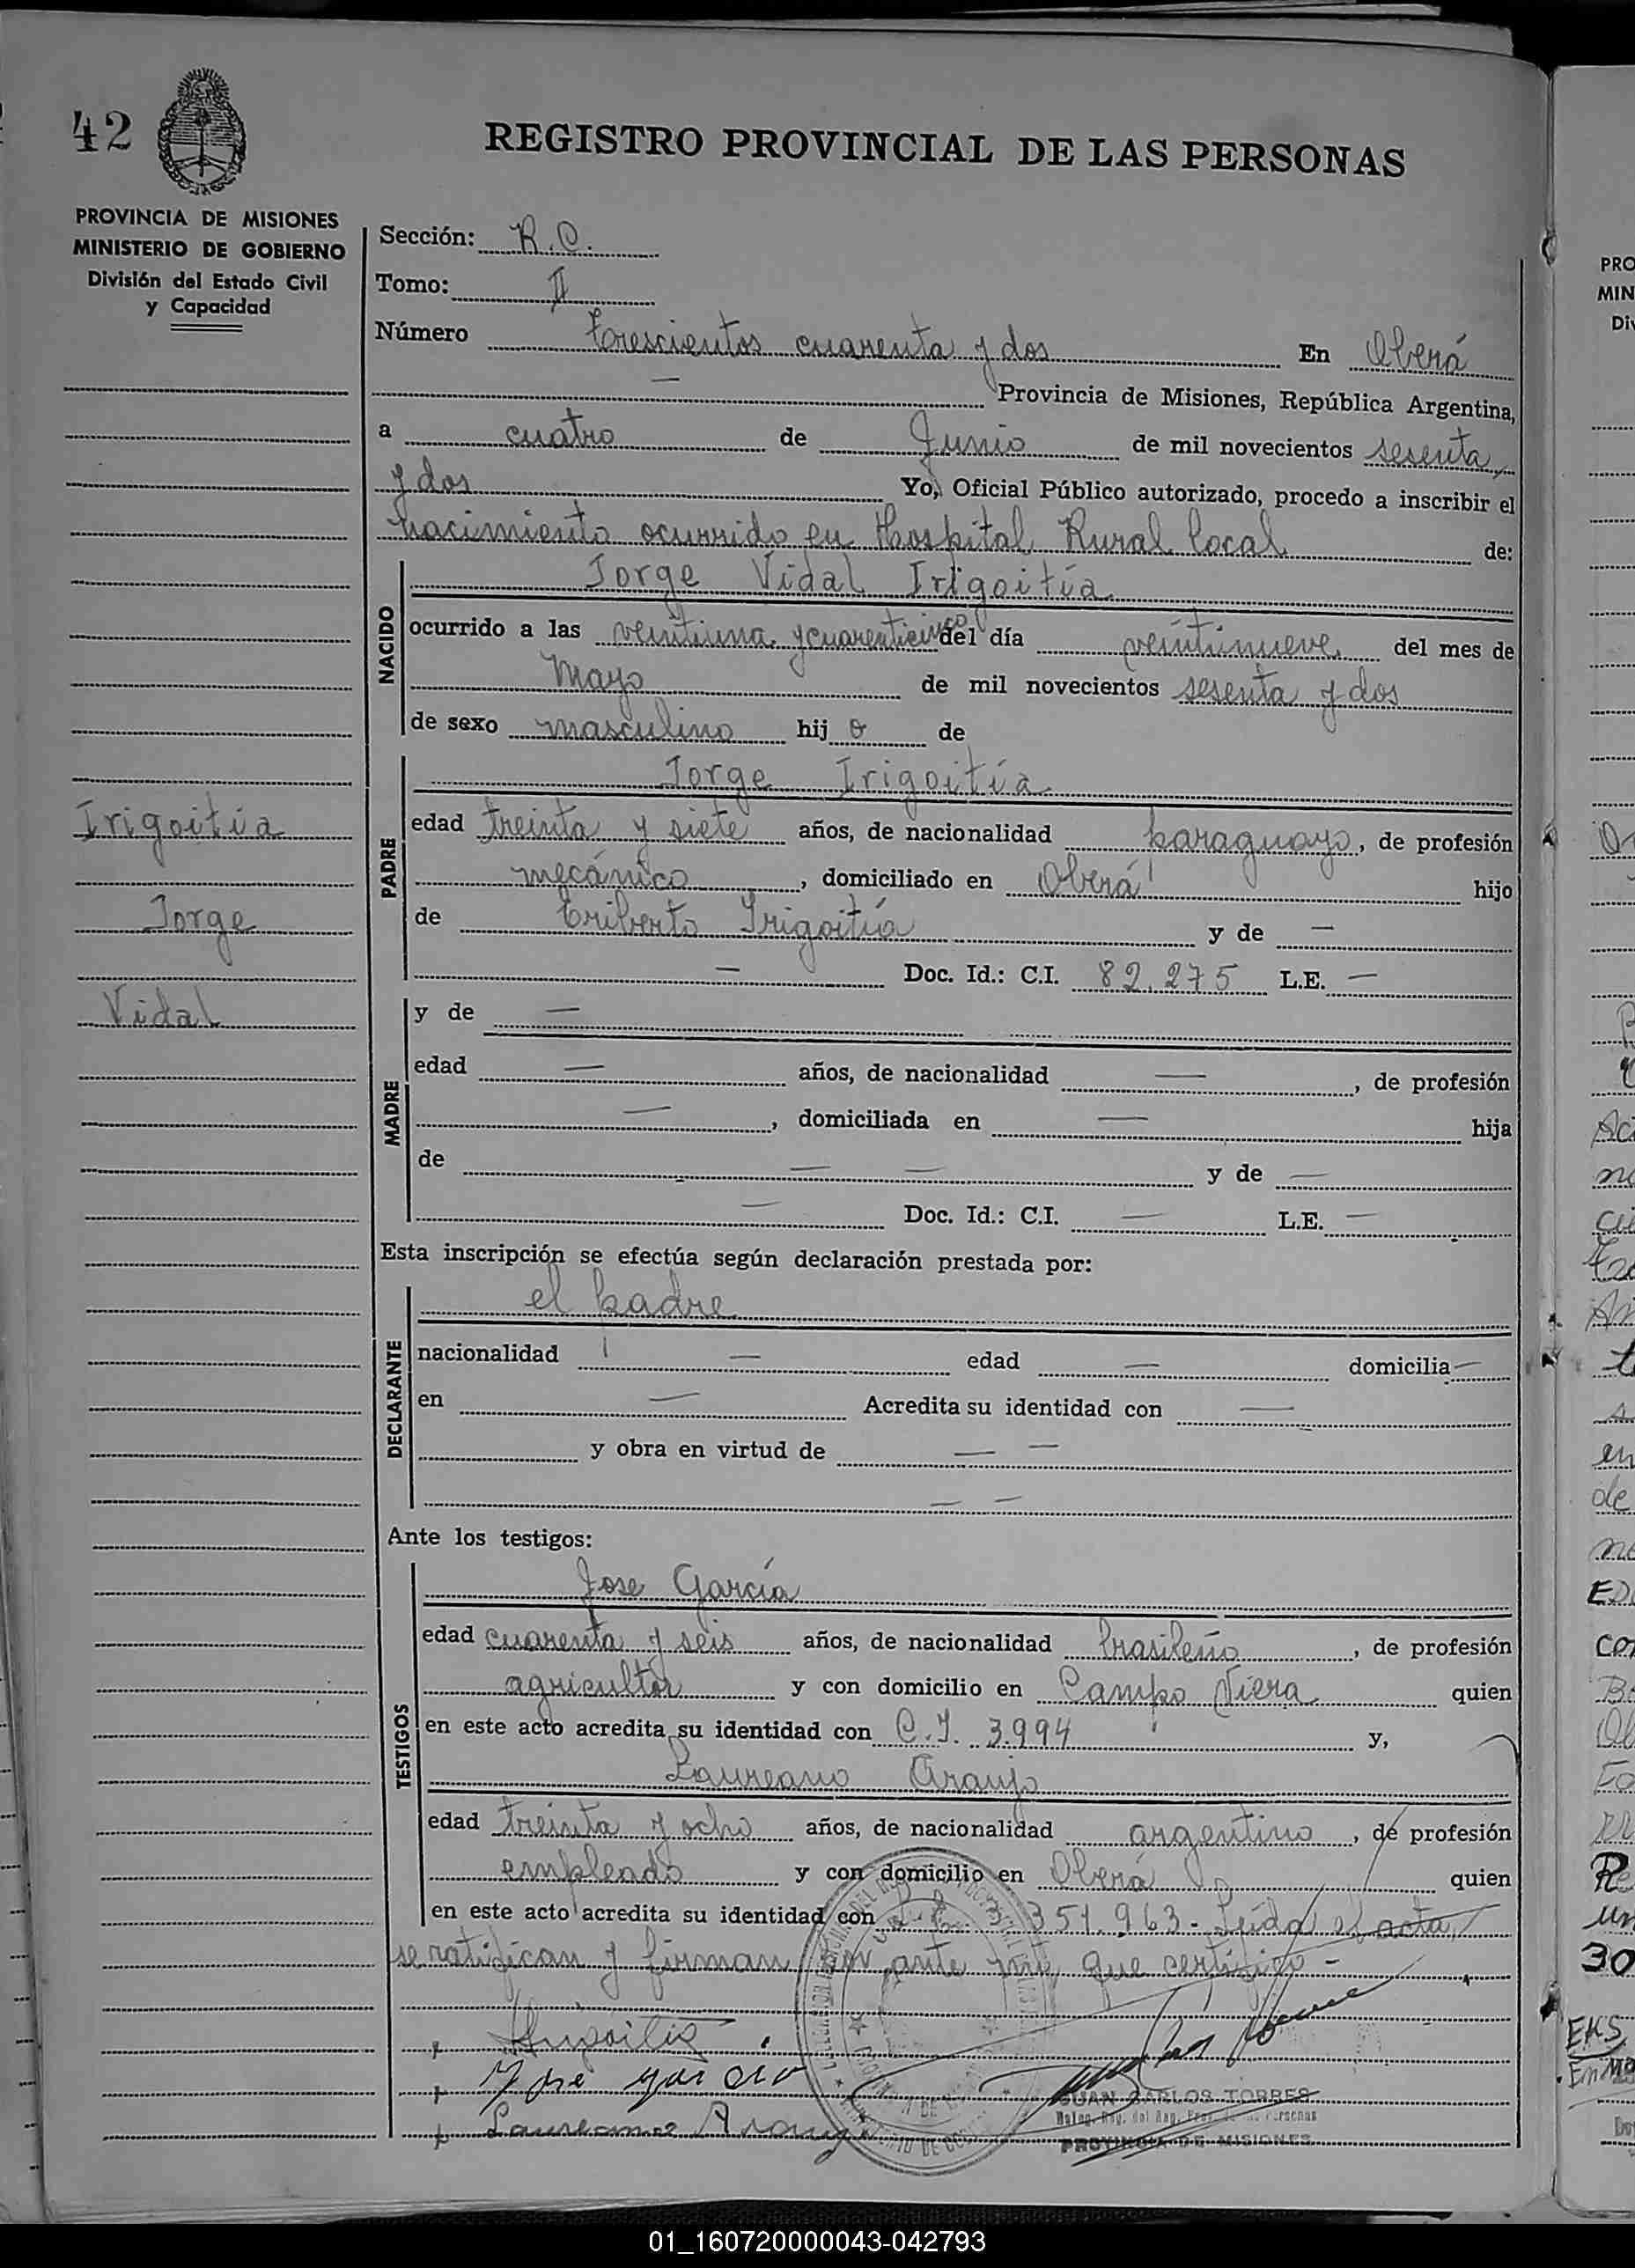 42
REGISTRO PROVINCIAL DE LAS PERSONAS
PROVINCIA DE MISIONES
MINISTERIO DE GOBIERNO
División del Estado Civil
y Capacidad
Sección: R.C.
Tomo: II
Número trescientos cuarenta y dos En Oberá
— Provincia de Misiones, República Argentina,
a cuatro de Junio de mil novecientos sesenta
y dos Yo, Oficial Público autorizado, procedo a inscribir el
nacimiento ocurrido en Hospital Rural local de:
NACIDO
Jorge Vidal Irigoitía
ocurrido a las veintiuna y cuarenticinco del día veintinueve del mes de
Mayo de mil novecientos sesenta y dos
de sexo masculino hijo de
PADRE
Jorge Irigoitía
Irigoitía
Jorge
Vidal
edad treinta y siete años, de nacionalidad paraguayo, de profesión
mecánico, domiciliado en Oberá hijo
de Eriberto Irigoitía y de —
— Doc. Id.: C.I. 82.275 L.E. —
MADRE
y de —
edad — años, de nacionalidad —, de profesión
—, domiciliada en — hija
de — — y de —
— Doc. Id.: C.I. — L.E. —
Esta inscripción se efectúa según declaración prestada por:
DECLARANTE
el padre
nacionalidad — edad — domicilia —
en — Acredita su identidad con —
y obra en virtud de — —
— —
Ante los testigos:
TESTIGOS
Jose García
edad cuarenta y seis años, de nacionalidad brasileño, de profesión
agricultor y con domicilio en Campo Viera quien
en este acto acredita su identidad con C.I. 3.994 y,
Laureano Araujo
edad treinta y ocho años, de nacionalidad argentino, de profesión
empleado y con domicilio en Oberá quien
en este acto acredita su identidad con 351.963.- Leída el acta,
se ratifican y firman por ante mí, que certifico -
Irigoitia
José garcia
Laureano Araujo
JUAN CARLOS TORRES
PROVINCIA DE MISIONES
01_160720000043-042793